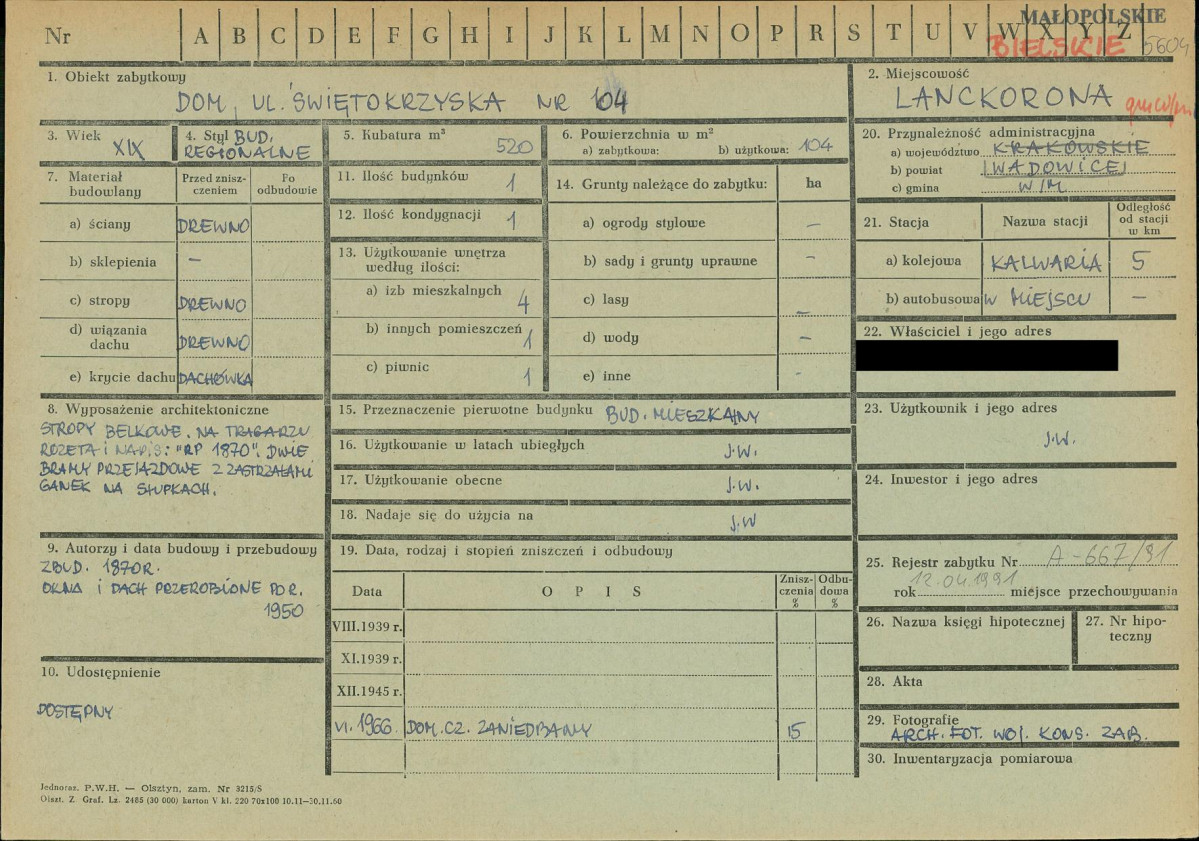 Nr A B C D E F G H I J K L M N O P R S T U V W X Y Z
MAŁOPOLSKIE
BIELSKIE 5604
1. Obiekt zabytkowy
DOM, UL. ŚWIĘTOKRZYSKA NR 104
2. Miejscowość
LANCKORONA
3. Wiek
XIX
4. Styl BUD.
REGIONALNE
5. Kubatura m³
520
6. Powierzchnia w m²
a) zabytkowa: b) użytkowa: 104
7. Materiał budowlany
Przed zniszczeniem
Po odbudowie
a) ściany DREWNO
b) sklepienia –
c) stropy DREWNO
d) wiązania dachu DREWNO
e) krycie dachu DACHÓWKA
8. Wyposażenie architektoniczne
STROPY BELKOWE. NA TRAGARZU
ROZETA i NAPIS: "RP 1870". DWIE
BRAMY PRZEJAZDOWE Z ZASTRZAŁAMI
GANEK NA SŁUPKACH.
9. Autorzy i data budowy i przebudowy
ZBUD. 1870R.
OKNA i DACH PRZEROBIONE PO R.
1950
10. Udostępnienie
DOSTĘPNY
11. Ilość budynków 1
12. Ilość kondygnacji 1
13. Użytkowanie wnętrza
według ilości:
a) izb mieszkalnych 4
b) innych pomieszczeń 1
c) piwnic 1
14. Grunty należące do zabytku: ha
a) ogrody stylowe –
b) sady i grunty uprawne –
c) lasy –
d) wody –
e) inne -
15. Przeznaczenie pierwotne budynku BUD. MIESZKALNY
16. Użytkowanie w latach ubiegłych J.W.
17. Użytkowanie obecne J.W.
18. Nadaje się do użycia na J.W
19. Data, rodzaj i stopień zniszczeń i odbudowy
Data O P I S Zniszczenia % Odbudowa %
VIII.1939 r.
XI.1939 r.
XII.1945 r.
VI. 1966. DOM. CZ. ZANIEDBANY 15
20. Przynależność administracyjna
a) województwo KRAKOWSKIE
b) powiat WADOWICE
c) gmina W/M
21. Stacja Nazwa stacji Odległość od stacji w km
a) kolejowa KALWARIA 5
b) autobusowa W MIEJSCU –
22. Właściciel i jego adres
23. Użytkownik i jego adres
J.W.
24. Inwestor i jego adres
25. Rejestr zabytku Nr A-667/91
12.04.1991
rok miejsce przechowywania
26. Nazwa księgi hipotecznej
27. Nr hipoteczny
28. Akta
29. Fotografie
ARCH. FOT. WOJ. KONS. ZAB.
30. Inwentaryzacja pomiarowa
Jednoraz. P.W.H. — Olsztyn, zam. Nr 3215/S
Olszt. Z. Graf. Lz. 2485 (30 000) karton V kl. 220 70x100 10.11—30.11.60